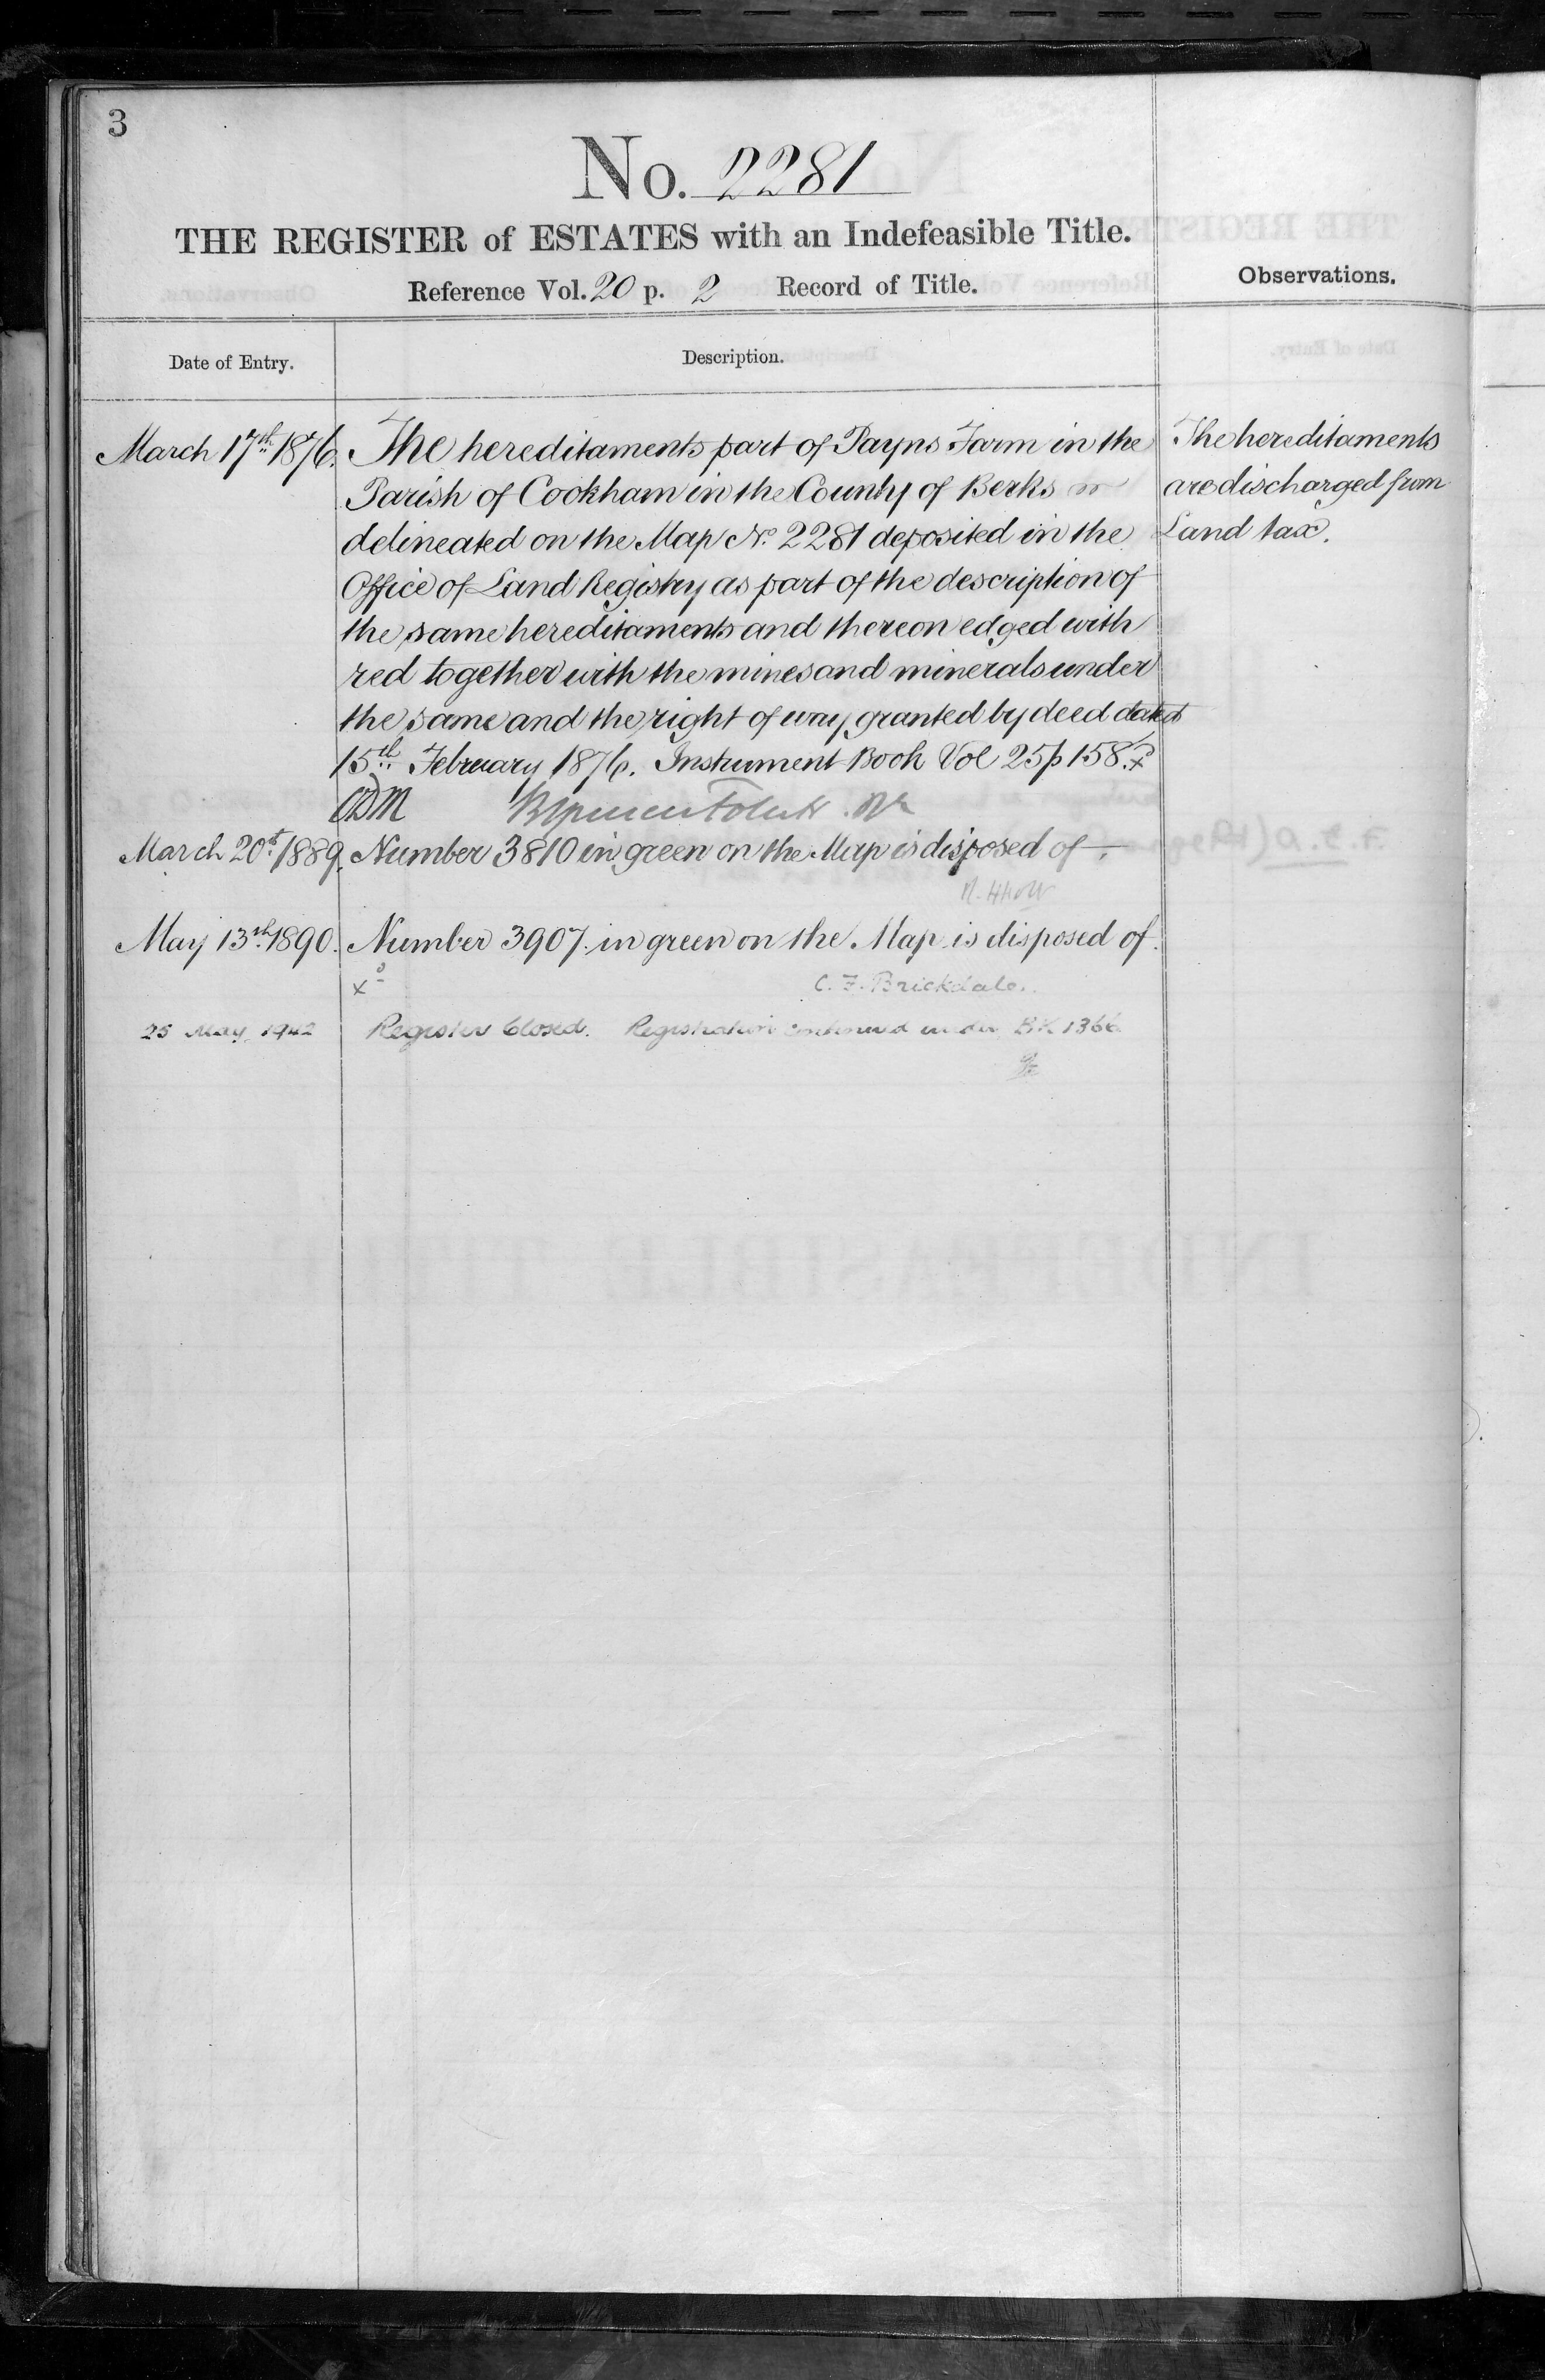 3
No. 2281
THE REGISTER of ESTATES with an Indefeasible Title.
Reference Vol. 20 p. 2 Record of Title.
Observations.
Date of Entry.
Description.
March 17th 1876.
The hereditaments part of Payns Farm in the
Parish of Cookham in the County of Berks
delineated on the Map No. 2281 deposited in the
Office of Land Registry as part of the description of
the same hereditaments and thereon edged with
red together with the mines and minerals under
the same and the right of way granted by deed dated
15th February 1876. Instrument Book Vol 25 p 158.
The hereditaments
are discharged from
Land tax.
March 20th 1889. Number 3810 in green on the Map is disposed of.
May 13th 1890. Number 3907. in green on the Map is disposed of.
C. F. Brickdale.
25 May 1942 Register Closed. Registration continued under BK 1366